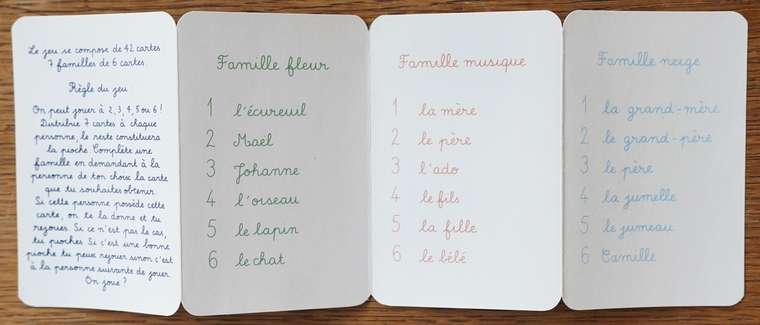 Le jeu se compose de 42 cartes :
7 familles de 6 cartes.
Règle du jeu :
On peut jouer à 2, 3, 4, 5 ou 6 !
Distribue 7 cartes à chaque
personne, le reste constituera
la pioche. Complète une
famille en demandant à la
personne de ton choix la carte
que tu souhaites obtenir.
Si cette personne possède cette
carte, on te la donne et tu
rejoues. Si ce n'est pas le cas,
tu pioches. Si c'est une bonne
pioche tu peux rejouer sinon c'est
à la personne suivante de jouer.
On joue ?
Famille fleur
1 l'écureuil
2 Maël
3 Johanne
4 l'oiseau
5 le lapin
6 le chat
Famille musique
1 la mère
2 le père
3 l'ado
4 le fils
5 la fille
6 le bébé
Famille neige
1 la grand-mère
2 le grand-père
3 le père
4 la jumelle
5 le jumeau
6 Camille